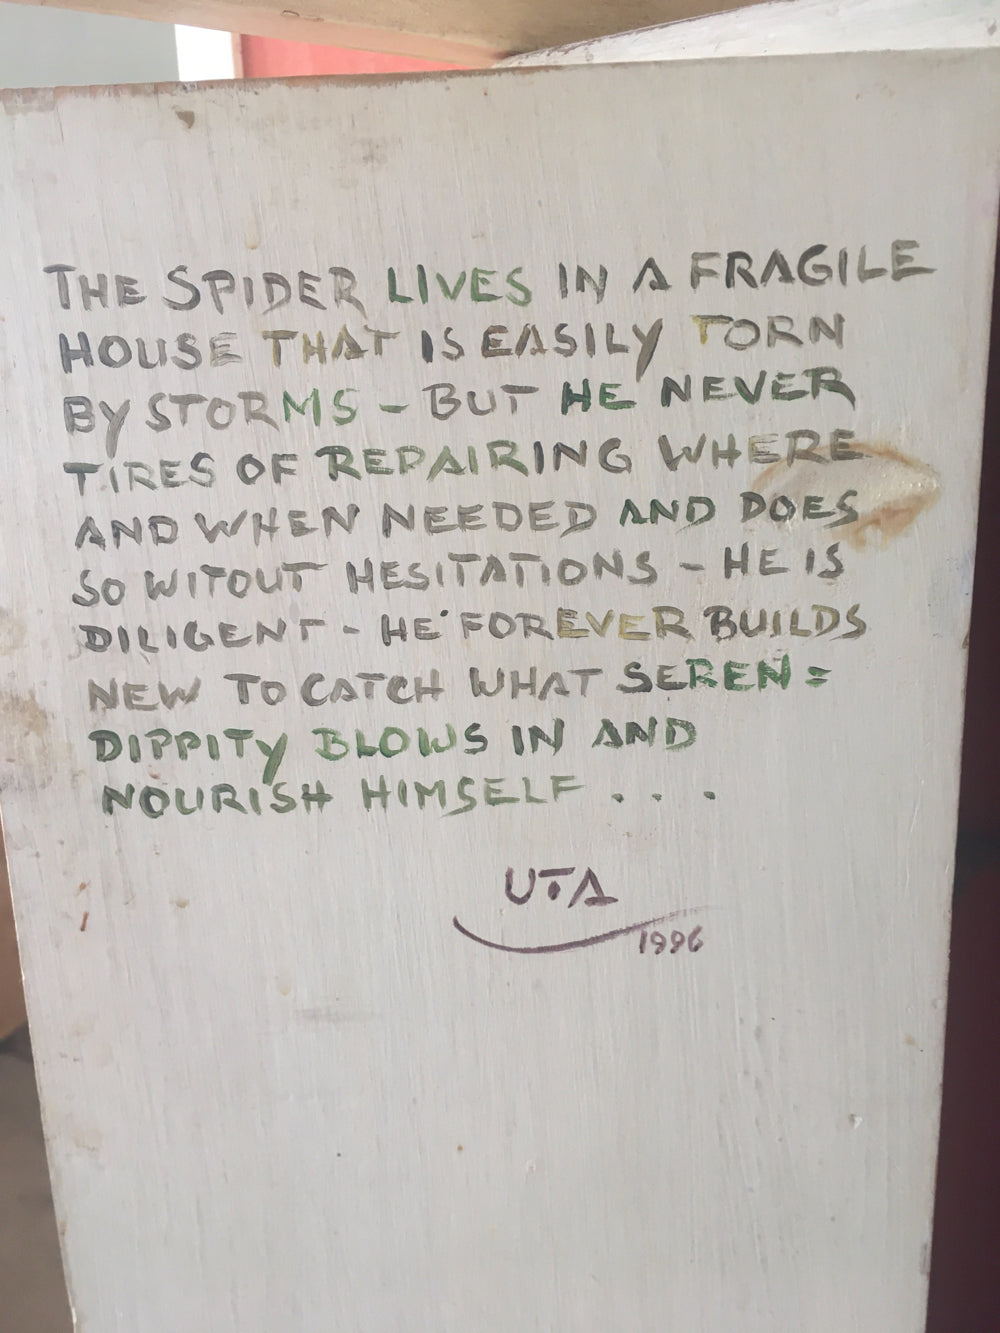 THE SPIDER LIVES IN A FRAGILE
HOUSE THAT IS EASILY TORN
BY STORMS - BUT HE NEVER
TIRES OF REPAIRING WHERE
AND WHEN NEEDED AND DOES
SO WITOUT HESITATIONS - HE IS
DILIGENT - HE FOREVER BUILDS
NEW TO CATCH WHAT SEREN=
DIPPITY BLOWS IN AND
NOURISH HIMSELF . . .
UTA
1996